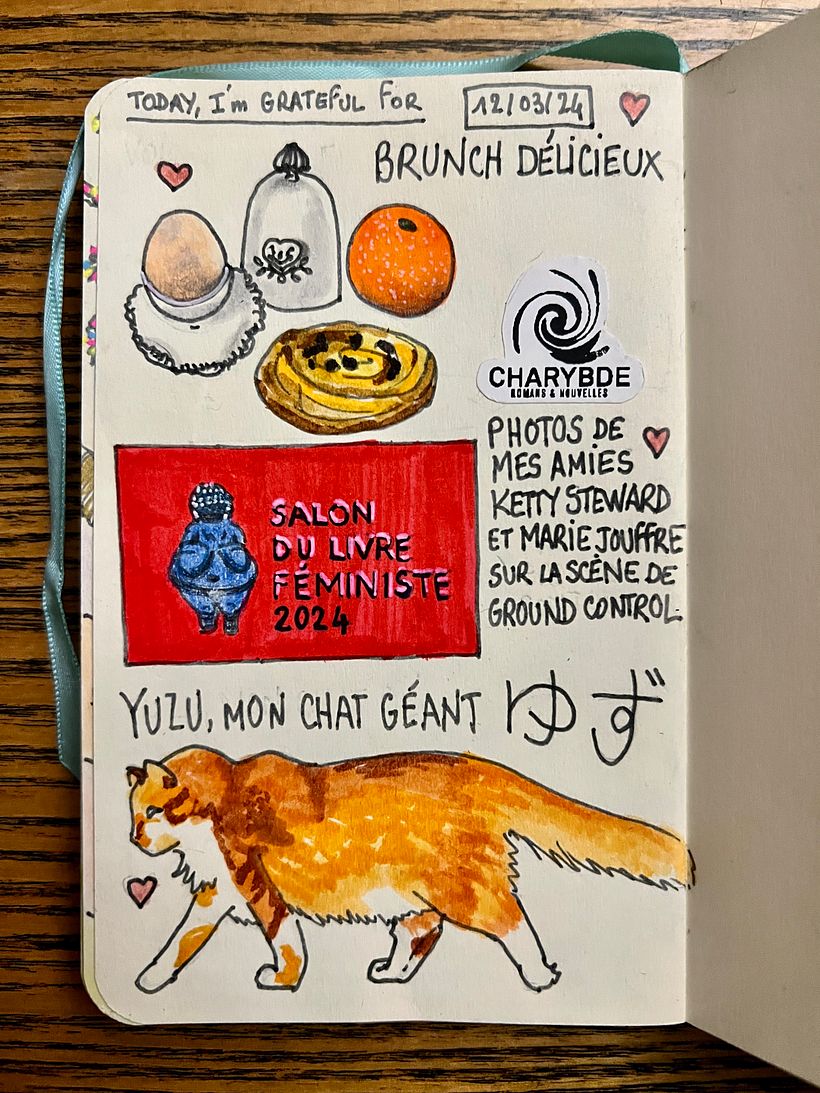 TODAY, I'm GRATEFUL FOR
12/03/24
BRUNCH DÉLICIEUX
CHARYBDE
ROMANS & NOUVELLES
PHOTOS DE
MES AMIES
KETTY STEWARD
ET MARIE JOUFFRE
SUR LA SCÈNE DE
GROUND CONTROL.
SALON
DU LIVRE
FÉMINISTE
2024
YUZU, MON CHAT GÉANT ゆず